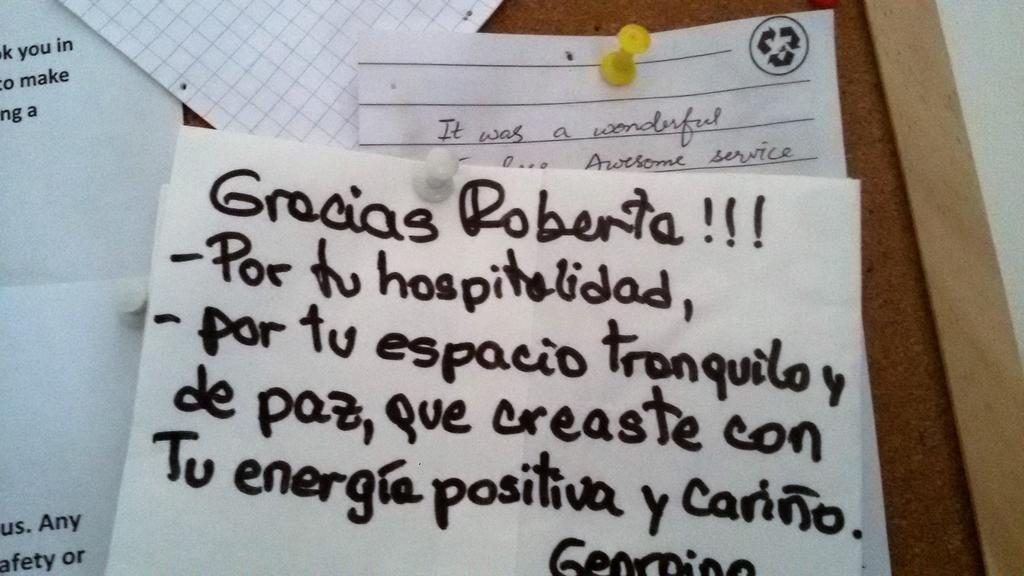 ok you in
to make
ng a
It was a wonderful
Awesome service
Gracias Roberta !!!
- Por tu hospitalidad,
- por tu espacio tranquilo y
de paz, que creaste con
Tu energía positiva y cariño.
Georgina
us. Any
afety or